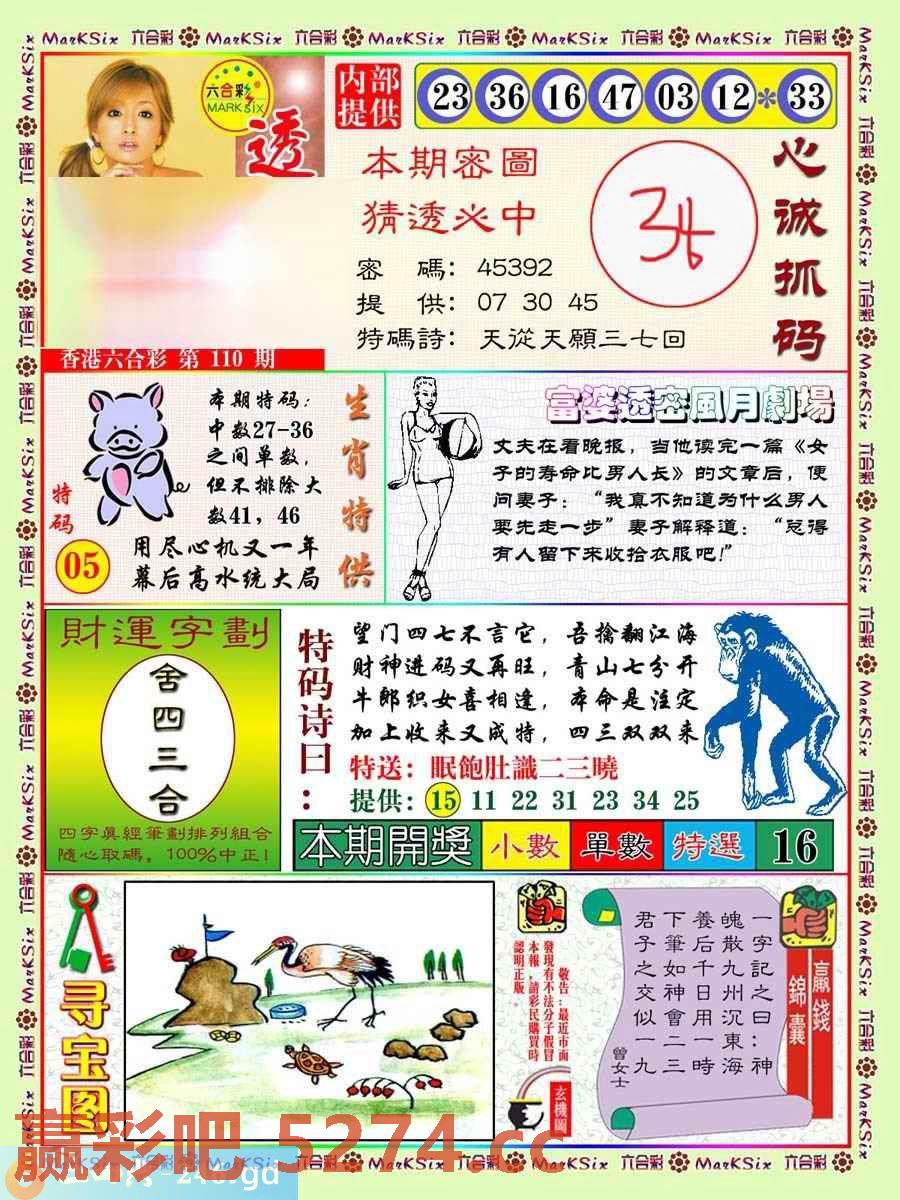 MarKSix 六合彩 MarKSix 六合彩 MarKSix 六合彩 MarKSix 六合彩 MarKSix 六合彩
六合彩
MARK SIX
透
内部
提供
23 36 16 47 03 12 * 33
本期密圖
猜透必中
密 碼: 45392
提 供: 07 30 45
特碼詩: 天從天願三七回
心诚抓码
香港六合彩 第 110 期
本期特码:
中数27-36
之间单数,
但不排除大
数41, 46
用尽心机又一年
幕后高水统大局
特码
05
生肖特供
富婆透密風月劇場
丈夫在看晚报, 当他读完一篇《女
子的寿命比男人长》的文章后, 便
问妻子: “我真不知道为什么男人
要先走一步” 妻子解释道: “总得
有人留下来收拾衣服吧!”
財運字劃
舍四三合
四字真經筆劃排列組合
隨心取碼。100%中正!
特码诗曰:
望门四七不言它, 吾擒翻江海
财神进码又再旺, 青山七分开
牛郎织女喜相逢, 本命是注定
加上收来又成特, 四三双双来
特送: 眠飽肚識二三曉
提供: 15 11 22 31 23 34 25
本期開獎 小數 單數 特選 16
寻宝图
敬告:最近市面
發現有不法分子假冒
本報,請彩民購買時
認明正版。
玄機圖
贏錢
錦囊
一字記之曰:神
魄散九州沉東海
養后千日用一時
下筆如神會二三
君子之交似一九
曾女士
赢彩吧 5274.cc
MarKSix 六合彩 MarKSix 六合彩 MarKSix 六合彩